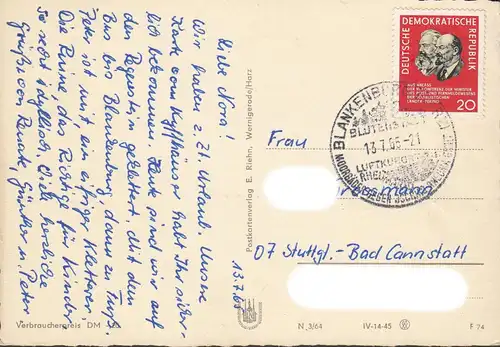 13.7.65
Liebe Nora!
Wir haben z. Zt. Urlaub. Unsere
Karte vom Kyffhäuser habt Ihr sicher-
lich bekommen. Heute sind wir auf
den Regenstein geklettert, mit dem
Bus bis Blankenburg, dann zu Fuß.
Peter ist ein eifriger Kletterer.
Die Räume das Richtige für Kinder.
So recht idyllisch. Viele herzliche
Grüße von Renate, Günther u. Peter
Verbraucherpreis DM
Postkartenverlag E. Riehn, Wernigerode/Harz
DEUTSCHE DEMOKRATISCHE REPUBLIK
AUS ANLASS
DER VI. KONFERENZ DER MINISTER
FÜR POST- UND FERNMELDEWESEN
DER SOZIALISTISCHEN
LÄNDER PEKING
20
BLANKENBURG
BLÜTENSTADT
13.7.65-21
LUFTKURORT
Frau
07 Stuttgt.-Bad Cannstatt
N 3/64
IV-14-45
F 74